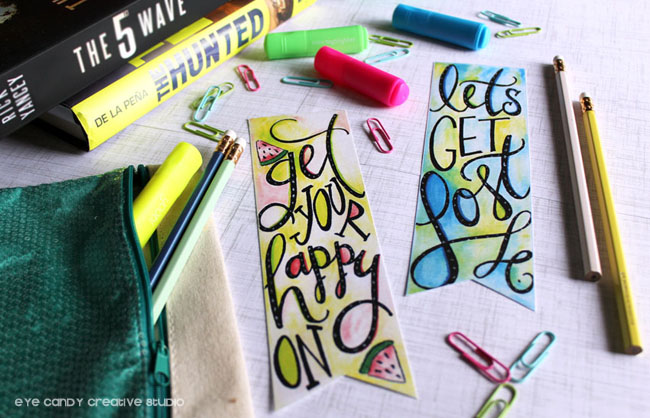 THE 5 WAVE
RICK
YANCEY
DE LA PEÑA
THE HUNTED
get
YOUR
happy
ON
lets
GET
lost
EYE CANDY CREATIVE STUDIO